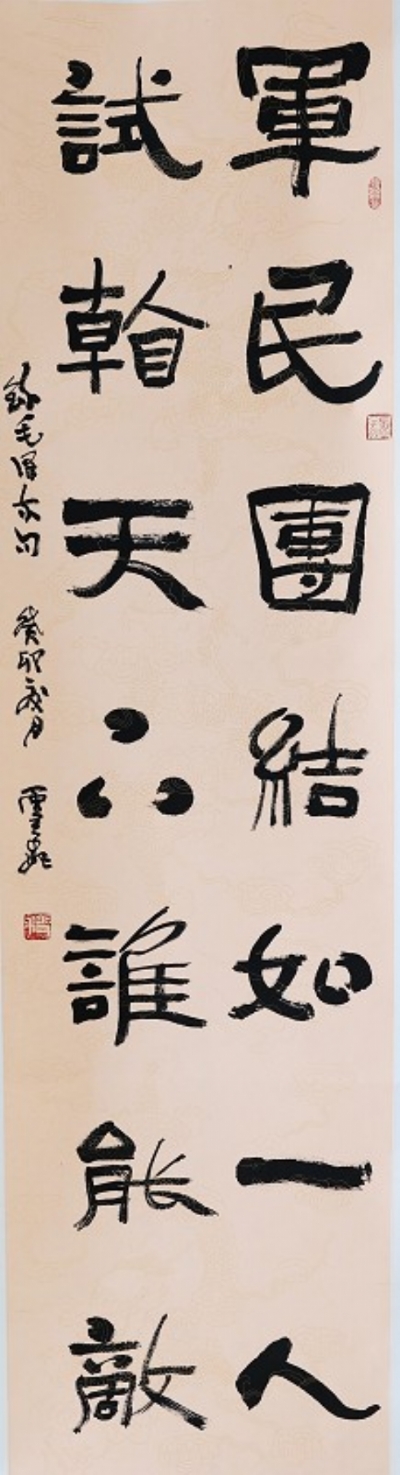 軍民團結如一人
試看天下誰能敵
錄毛澤东句 癸卯夏月